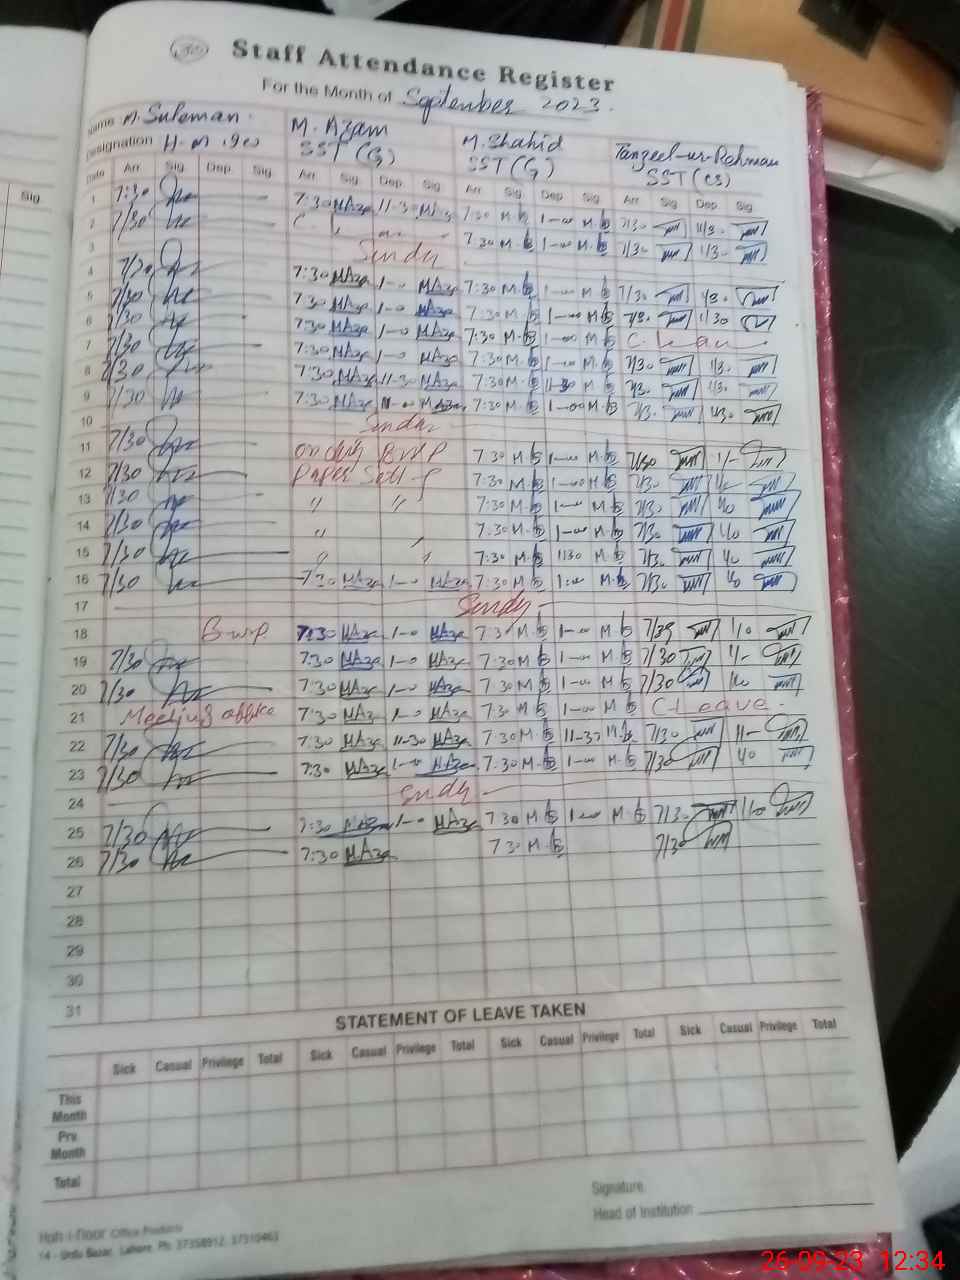 Staff Attendance Register
For the Month of September 2023.
Name M. Suleman. M. Azam M. Shahid Tanzeel-ur-Rehman
Designation H.M SST (G) SST (G) SST (CS)
Date Arr. Sig. Dep. Sig. Arr. Sig. Dep. Sig. Arr. Sig. Dep Sig. Arr. Sig Dep Sig.
Sig.
1 7:30 7:30 MAza 11-30 MAza 7:30 M.S 1-00 M.S 7/30 11/30
2 7/30 7:30 M.S 1-00 M.S 7/30 11/30
3 Sunday
4 7/30 7:30 MAza 1-0 MAza 7:30 M.S 1-00 M.S 7/30
5 7/30 7:30 MAza 1-0 MAza 7:30 M.S 1-00 M.S 7/30 1/30
6 7/30 7:30 MAza 1-0 MAza 7:30 M.S 1-00 M.S C. Leave
7 7/30 7:30 MAza 1-0 MAza 7:30 M.S 1-00 M.S 7/30 1/30
8 7/30 7:30 MAza 11-30 MAza 7:30 M.S 11-30 M.S 7/30 11/30
9 7/30 7:30 MAza MAza 7:30 M.S 1-00 M.S 7/30
10 Sunday
11 7/30 on duty BWP 7:30 M.S 1-00 M.S 7/30 1/-
12 7/30 Paper 7:30 M.S 1-00 M.S 7/30
13 7/30 " " 7:30 M.S 1-00 M.S 7/30 1/0
14 7/30 " 7:30 M.S 1-00 M.S 7/30 1/0
15 7/30 " " 7:30 M.S 1130 M.S 7/30 1/0
16 7/30 7:30 MAza 1-0 MAza 7:30 M.S 1:00 M.S 7/30 1/0
17 Sundy
18 B.w.p. 7:30 MAza 1-0 MAza 7:30 M.S 1-00 M.S 7/30 1/0
19 7/30 7:30 MAza 1-0 MAza 7:30 M.S 1-00 M.S 7/30 1/-
20 7/30 7:30 MAza 1-0 MAza 7:30 M.S 1-00 M.S 7/30 1/0
21 Meeting office 7:30 MAza 1-0 MAza 7:30 M.S 1-00 M.S C Leave.
22 7/30 7:30 MAza 11-30 MAza 7:30 M.S 11-30 M.S 7/30 11-
23 7/30 7:30 MAza 1-0 MAza 7:30 M.S 1-00 M.S 7/30 1/0
24 Sndy
25 7/30 7:30 MAza 1-0 MAza 7:30 M.S 1-00 M.S 7/30 1/0
26 7/30 7:30 MAza 7:30 M.S 7/30
27
28
29
30
31
STATEMENT OF LEAVE TAKEN
Sick Casual Privilege Total Sick Casual Privilege Total Sick Casual Privilege Total Sick Casual Privilege Total
This Month
Prv. Month
Total
Signature
Head of Institution
Koh-i-Noor Office Products
14 - Urdu Bazar, Lahore. Ph: 37358912, 37310463
26-09-23 12:34